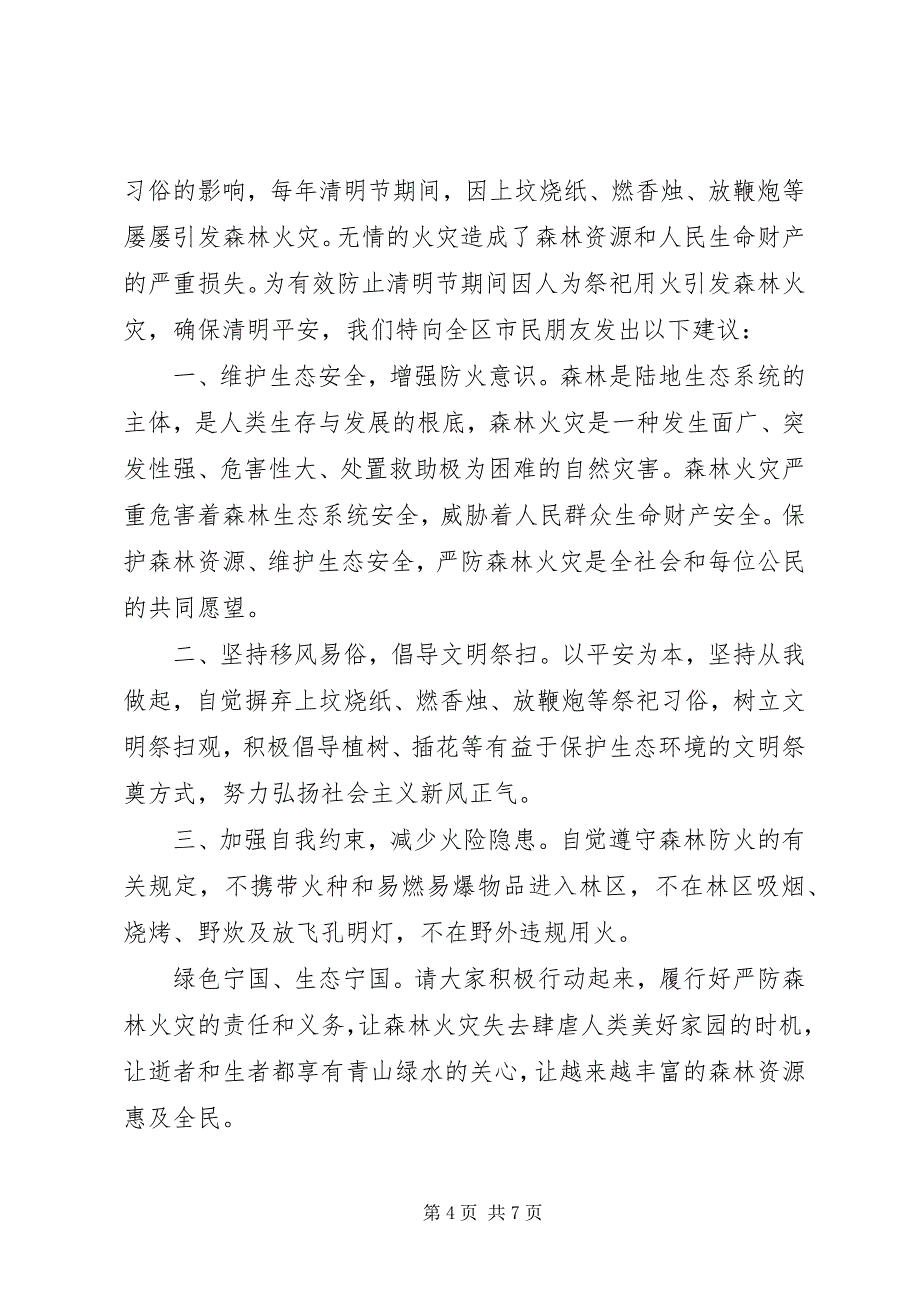 习俗的影响，每年清明节期间，因上坟烧纸、燃香烛、放鞭炮等
屡屡引发森林火灾。无情的火灾造成了森林资源和人民生命财产
的严重损失。为有效防止清明节期间因人为祭祀用火引发森林火
灾，确保清明平安，我们特向全区市民朋友发出以下建议：
一、维护生态安全，增强防火意识。森林是陆地生态系统的
主体，是人类生存与发展的根底，森林火灾是一种发生面广、突
发性强、危害性大、处置救助极为困难的自然灾害。森林火灾严
重危害着森林生态系统安全，威胁着人民群众生命财产安全。保
护森林资源、维护生态安全，严防森林火灾是全社会和每位公民
的共同愿望。
二、坚持移风易俗，倡导文明祭扫。以平安为本，坚持从我
做起，自觉摒弃上坟烧纸、燃香烛、放鞭炮等祭祀习俗，树立文
明祭扫观，积极倡导植树、插花等有益于保护生态环境的文明祭
奠方式，努力弘扬社会主义新风正气。
三、加强自我约束，减少火险隐患。自觉遵守森林防火的有
关规定，不携带火种和易燃易爆物品进入林区，不在林区吸烟、
烧烤、野炊及放飞孔明灯，不在野外违规用火。
绿色宁国、生态宁国。请大家积极行动起来，履行好严防森
林火灾的责任和义务，让森林火灾失去肆虐人类美好家园的时机，
让逝者和生者都享有青山绿水的关心，让越来越丰富的森林资源
惠及全民。
第 4 页 共 7 页